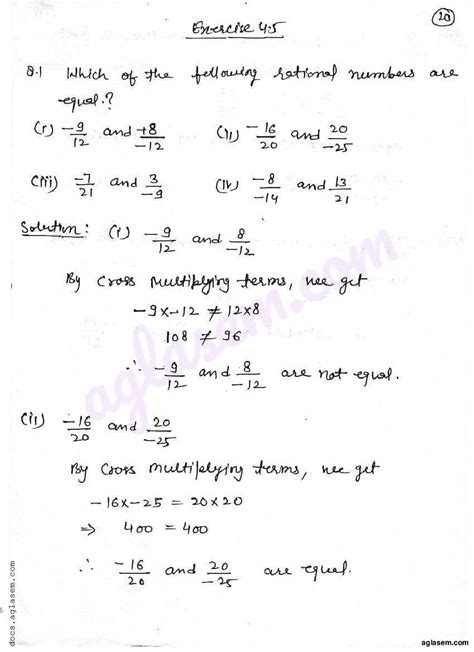 20
Exercise 4.5
Q.1 Which of the following rational numbers are
equal.?
(i) -9/12 and +8/-12 (ii) -16/20 and 20/-25
(iii) -7/21 and 3/-9 (iv) -8/-14 and 13/21
Solution: (i) -9/12 and 8/-12
By Cross Multiplying terms, we get
-9x-12 ≠ 12x8
108 ≠ 96
∴ -9/12 and 8/-12 are not equal.
(ii) -16/20 and 20/-25
By Cross Multiplying terms, we get
-16x-25 = 20x20
⇒ 400 = 400
∴ -16/20 and 20/-25 are equal.
aglasem.com
docs.aglasem.com
aglasem.com